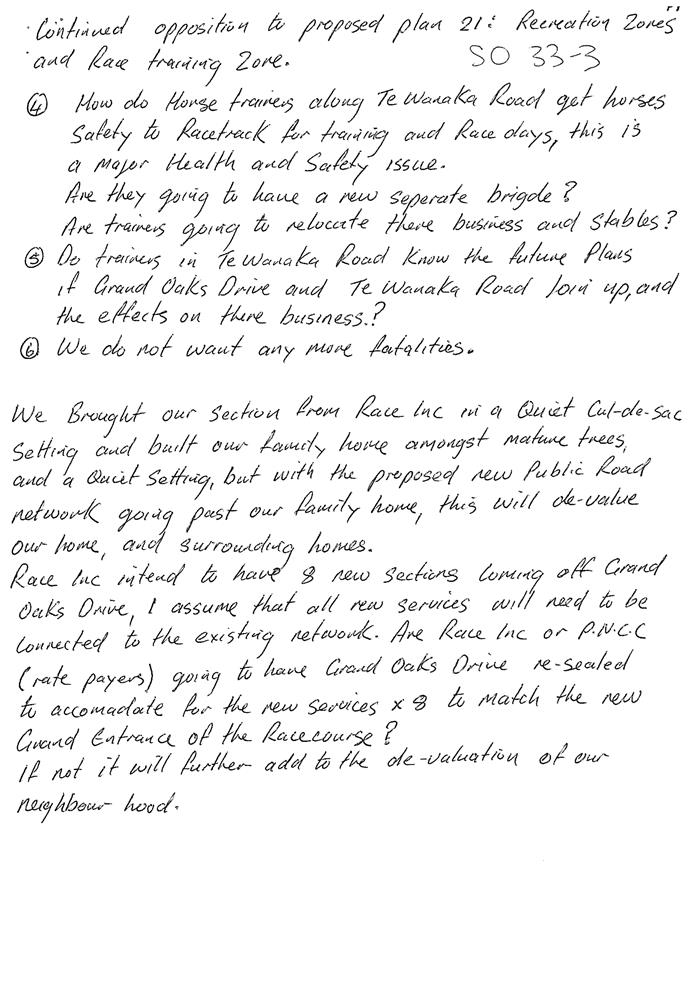 Continued opposition to proposed plan 21: Recreation Zones
and Race training Zone. SO 33-3
④ How do Horse trainers along Te Wanaka Road get horses
Safety to Racetrack for training and Race days, this is
a Major Health and Safety issue.
Are they going to have a new seperate brigde?
Are trainers going to relocate there business and Stables?
⑤ Do trainers in Te Wanaka Road Know the future Plans
if Grand Oaks Drive and Te Wanaka Road Join up, and
the effects on there business.?
⑥ We do not want any more fatalities.
We Brought our Section from Race Inc in a Quiet Cul-de-sac
Setting and built our family home amongst mature trees,
and a Quiet Setting, but with the proposed new Public Road
network going past our family home, this will de-value
our home, and surrounding homes.
Race Inc intend to have 8 new Sections Coming off Grand
Oaks Drive, I assume that all new services will need to be
Connected to the existing network. Are Race Inc or P.N.C.C
(rate payers) going to have Grand Oaks Drive re-sealed
to accomadate for the new services x 8 to match the new
Grand Entrance of the Racecourse?
If not it will further add to the de-valuation of our
neighbour hood.